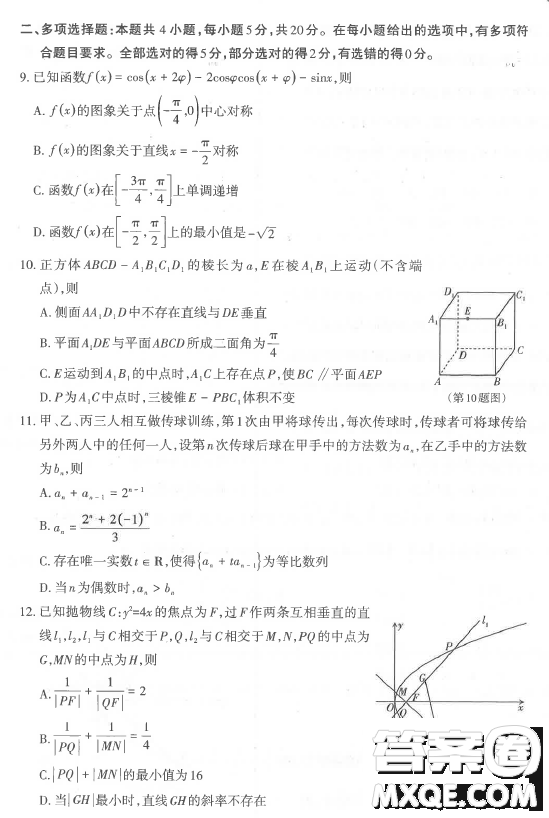 二、多项选择题:本题共 4 小题,每小题 5 分,共 20 分。在每小题给出的选项中,有多项符
合题目要求。全部选对的得 5 分,部分选对的得 2 分,有选错的得 0 分。
9. 已知函数f(x) = cos(x + 2φ) - 2cosφcos(x + φ) - sinx,则
A. f(x)的图象关于点(-π/4,0)中心对称
B. f(x)的图象关于直线x = -π/2对称
C. 函数f(x)在[-3π/4,π/4]上单调递增
D. 函数f(x)在[-π/2,π/2]上的最小值是-√2
10. 正方体 ABCD - A₁B₁C₁D₁ 的棱长为 a,E 在棱 A₁B₁ 上运动(不含端
点),则
A. 侧面AA₁D₁D中不存在直线与DE垂直
B. 平面A₁DE与平面ABCD所成二面角为π/4
C. E运动到A₁B₁的中点时,A₁C上存在点P,使BC ∥平面AEP
D. P为A₁C中点时,三棱锥E - PBC₁体积不变
D₁
C₁
A₁
E
B₁
D
C
A
B
(第10题图)
11. 甲、乙、丙三人相互做传球训练,第1次由甲将球传出,每次传球时,传球者可将球传给
另外两人中的任何一人,设第n次传球后球在甲手中的方法数为aₙ,在乙手中的方法数
为bₙ,则
A. aₙ + aₙ₋₁ = 2ⁿ⁻¹
B. aₙ = (2ⁿ + 2(-1)ⁿ)/3
C. 存在唯一实数t ∈ R,使得{aₙ + taₙ₋₁}为等比数列
D. 当n为偶数时,aₙ > bₙ
12. 已知抛物线C:y²=4x的焦点为F,过F作两条互相垂直的直
线l₁,l₂,l₁与C相交于P,Q,l₂与C相交于M,N,PQ的中点为
G,MN的中点为H,则
A. 1/|PF| + 1/|QF| = 2
B. 1/|PQ| + 1/|MN| = 1/4
C. |PQ| + |MN|的最小值为16
D. 当|GH|最小时,直线GH的斜率不存在
y
l₁
P
G
M
O
F
Q
x
答案卷
MXQE.COM